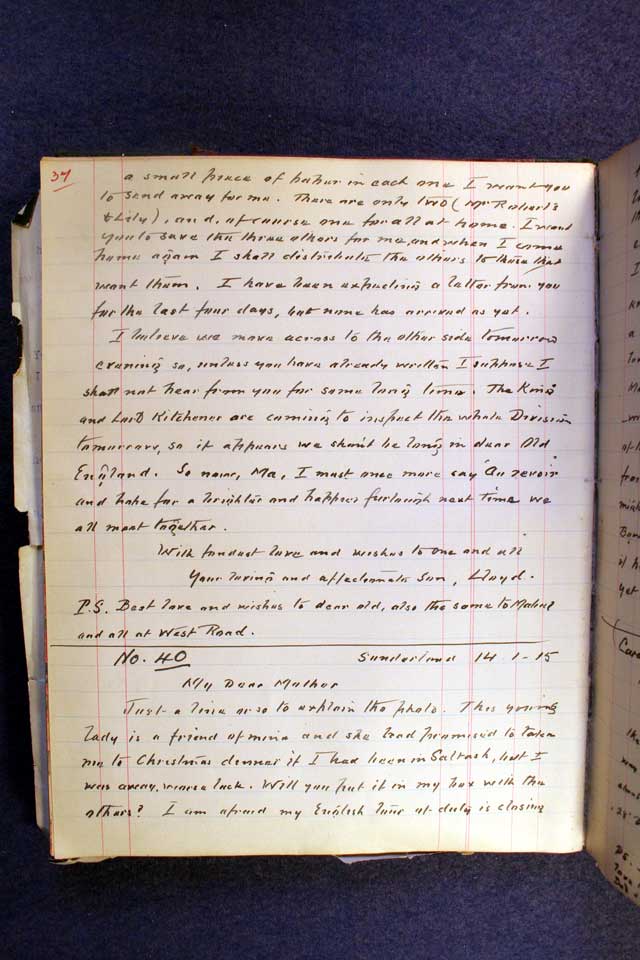 37
a small piece of paper in each one I want you
to send away for me. There are only two (Mr Roberts
& Lily), and, of course one for all at home. I want
you to save the three others for me, and when I come
home again I shall distribute the others to those that
want them. I have been expecting a letter from you
for the last four days, but none has arrived as yet.
I believe we move across to the other side tomorrow
evening so, unless you have already written I suppose I
shall not hear from you for some long time. The King
and Lord Kitchener are coming to inspect the whole Division
tomorrow, so it appears we shan't be long in dear Old
England. So now, Ma, I must once more say 'Au revoir'
and hope for a brighter and happier furlough next time we
all meet together.
With fondest love and wishes to one and all
Your loving and affectionate Son, Lloyd.
P.S. Best love and wishes to dear old, also the same to Mabel
and all at West Road.
No. 40 Sunderland 14.1-15
My Dear Mother
Just a line or so to explain the photo. This young
lady is a friend of mine and she had promised to take
me to Christmas dinner if I had been in Saltash, but I
was away, worse luck. Will you put it in my box with the
others? I am afraid my English tour of duty is closing